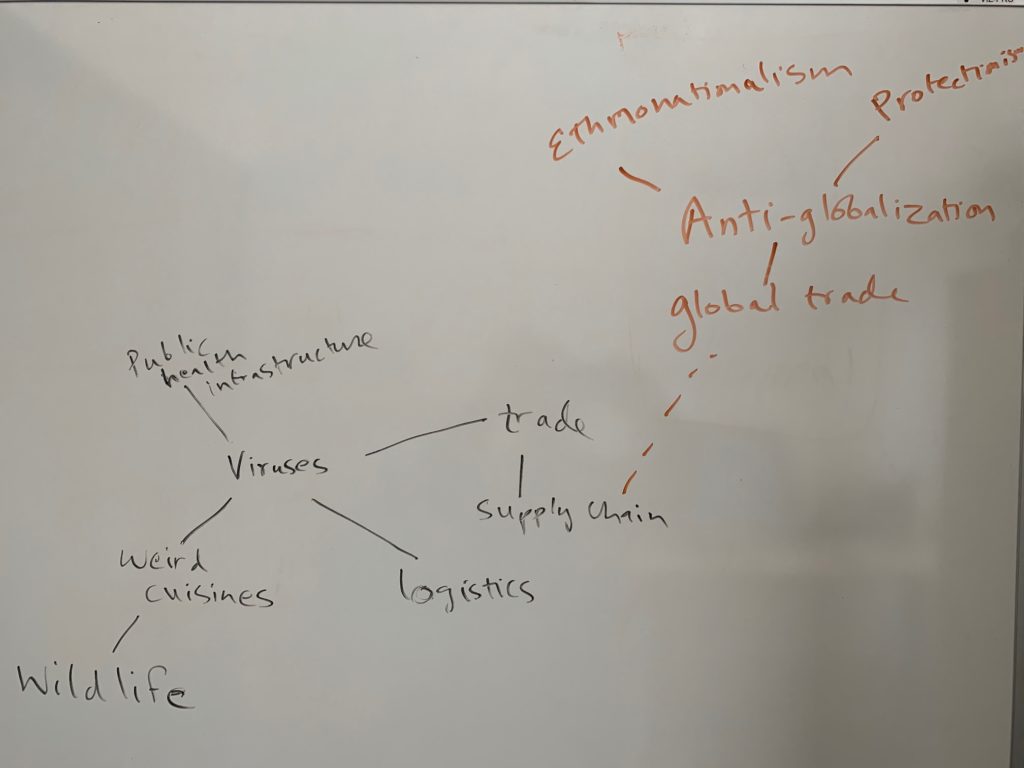 Ethnonationalism
Protectionism
Anti-globalization
global trade
Public
health
infrastructure
trade
Viruses
supply chain
weird
cuisines
logistics
Wildlife